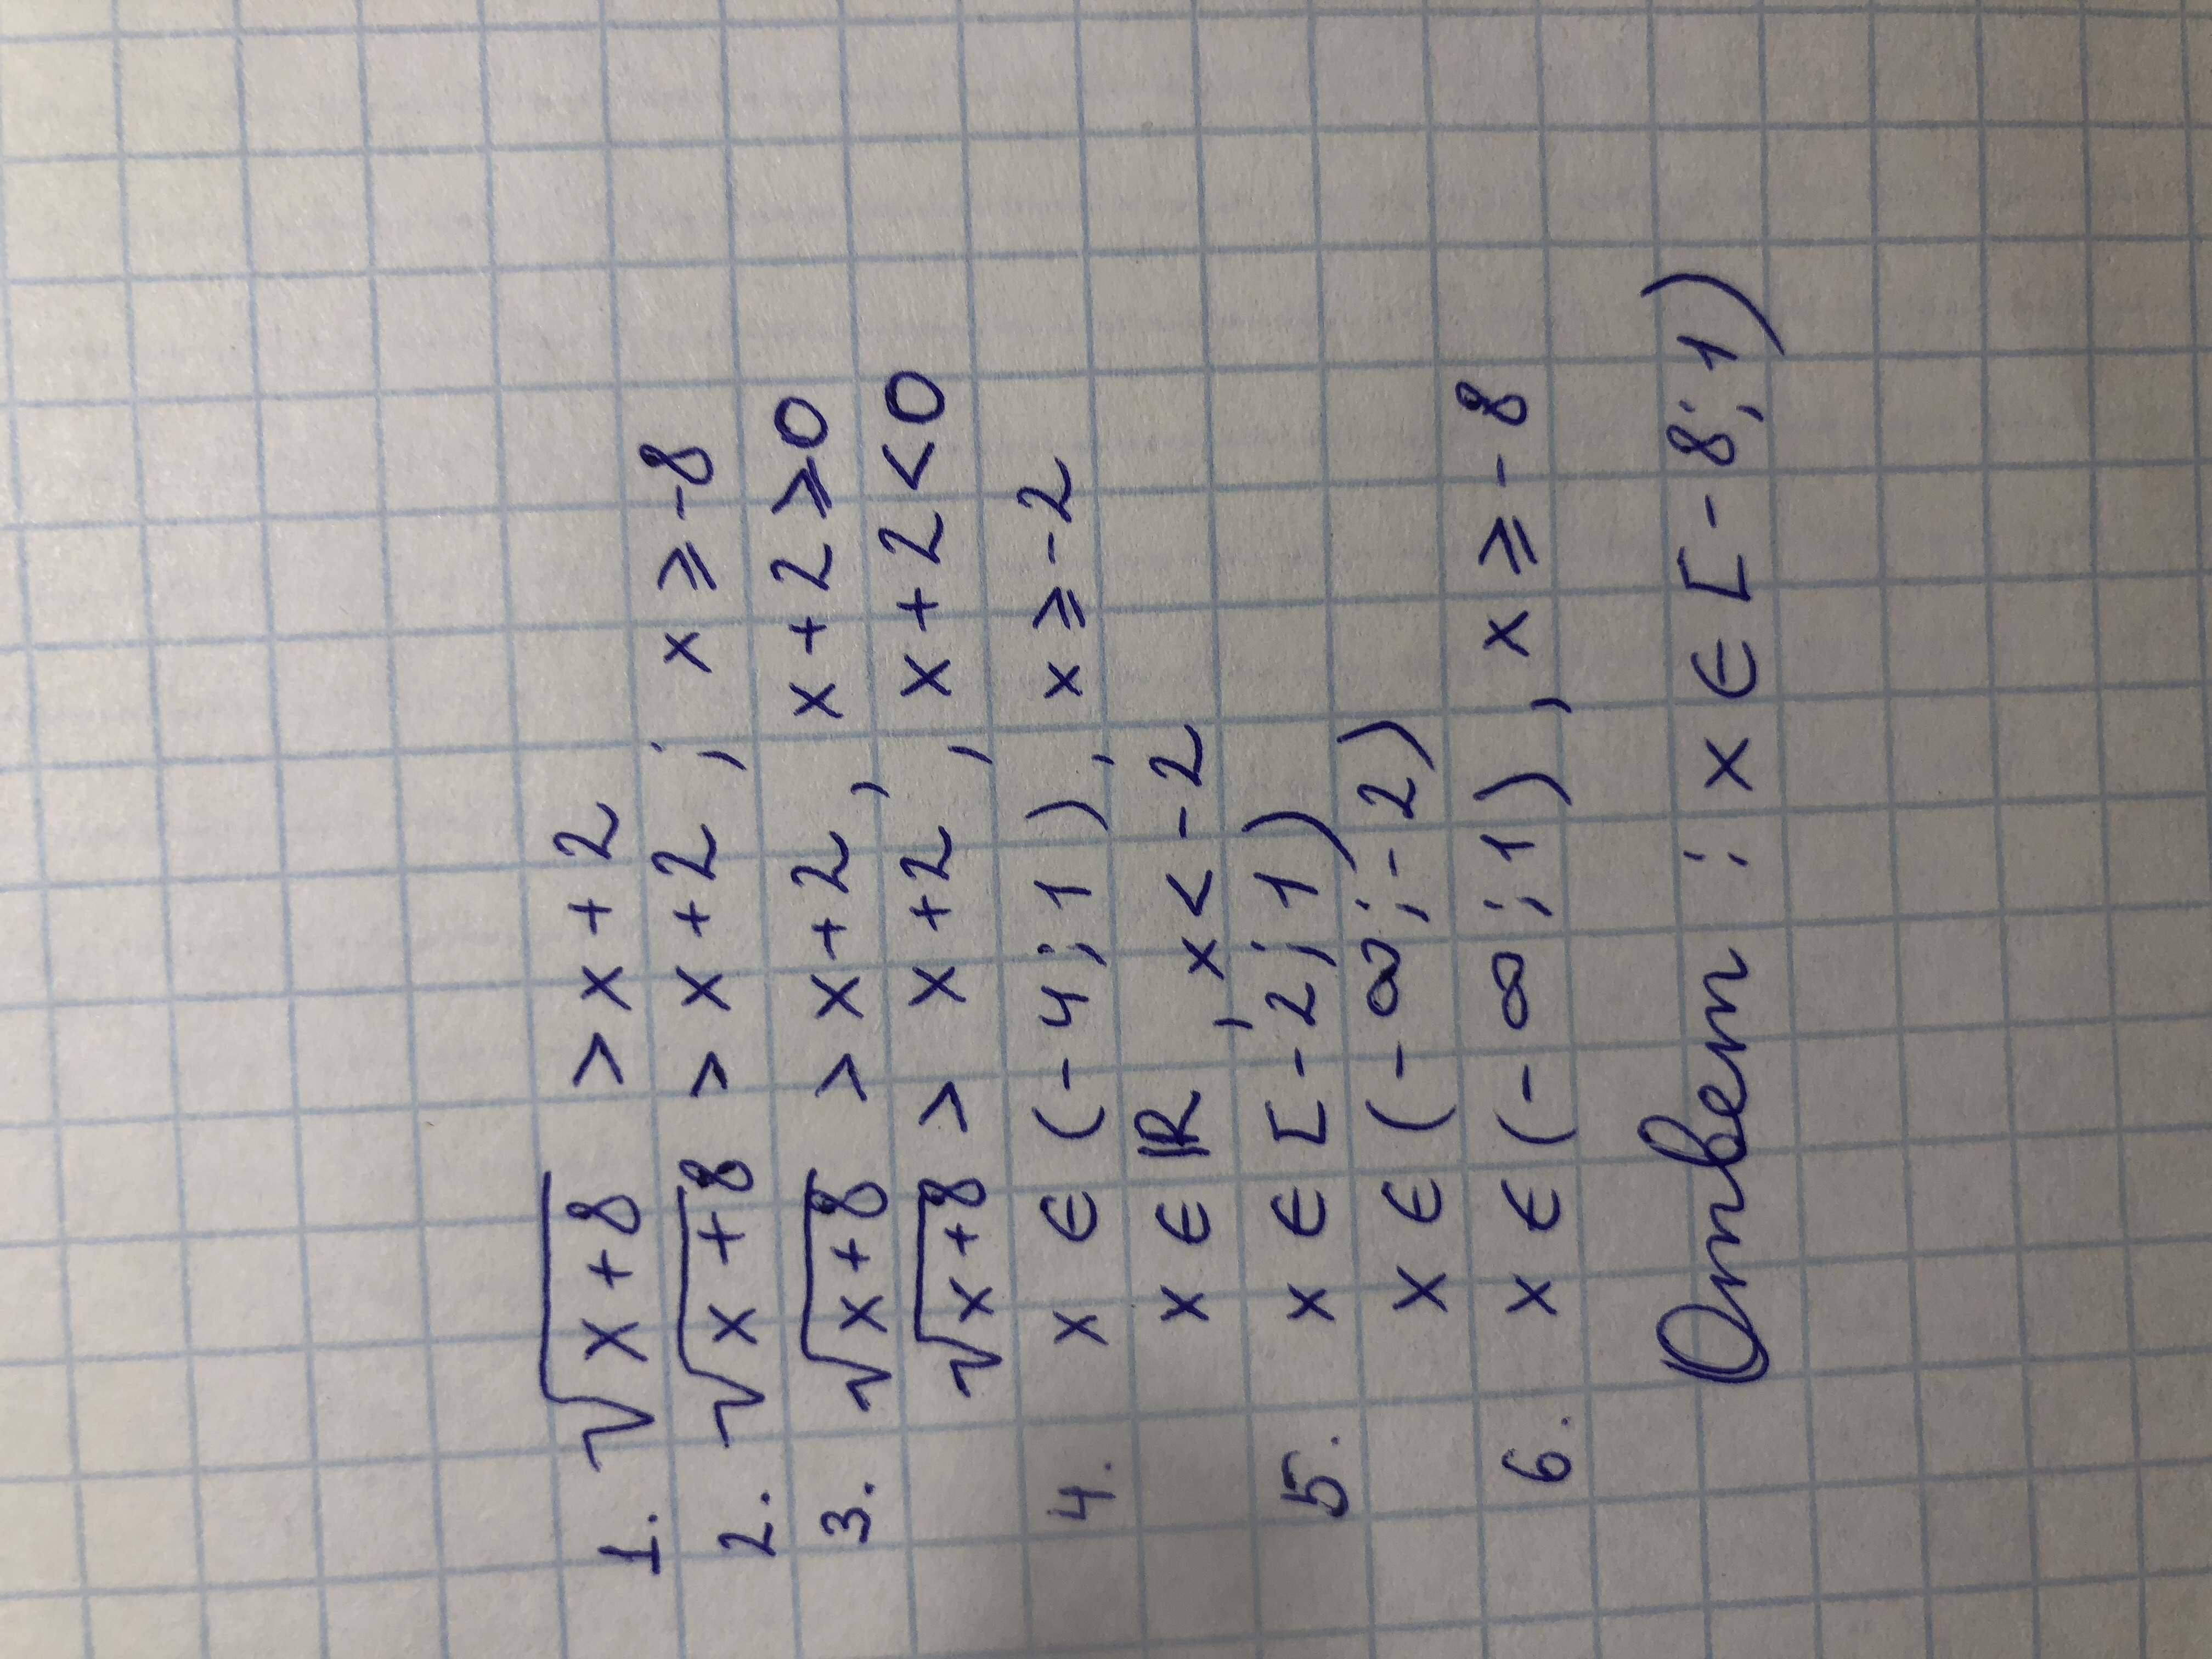 1. √x+8 > x+2
2. √x+8 > x+2 ; x ⩾ -8
3. √x+8 > x+2, x+2⩾0
√x+8 > x+2, x+2<0
4. x ∈ (-4;1), x ⩾ -2
x ∈ ℝ, x < -2
5. x ∈ [-2;1)
x ∈ (-∞;-2)
6. x ∈ (-∞;1), x ⩾ -8
Ответ: x ∈ [-8;1)